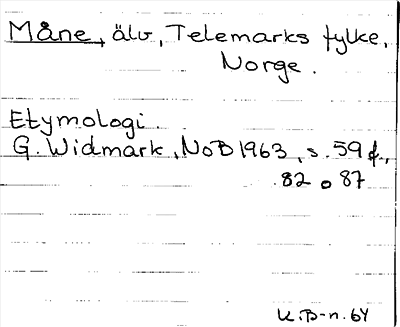 Måne, älv, Telemarks fylke,
Norge.
Etymologi.
G. Widmark, NoB 1963, s. 59 f.,
82 o 87
K.B-n. 64